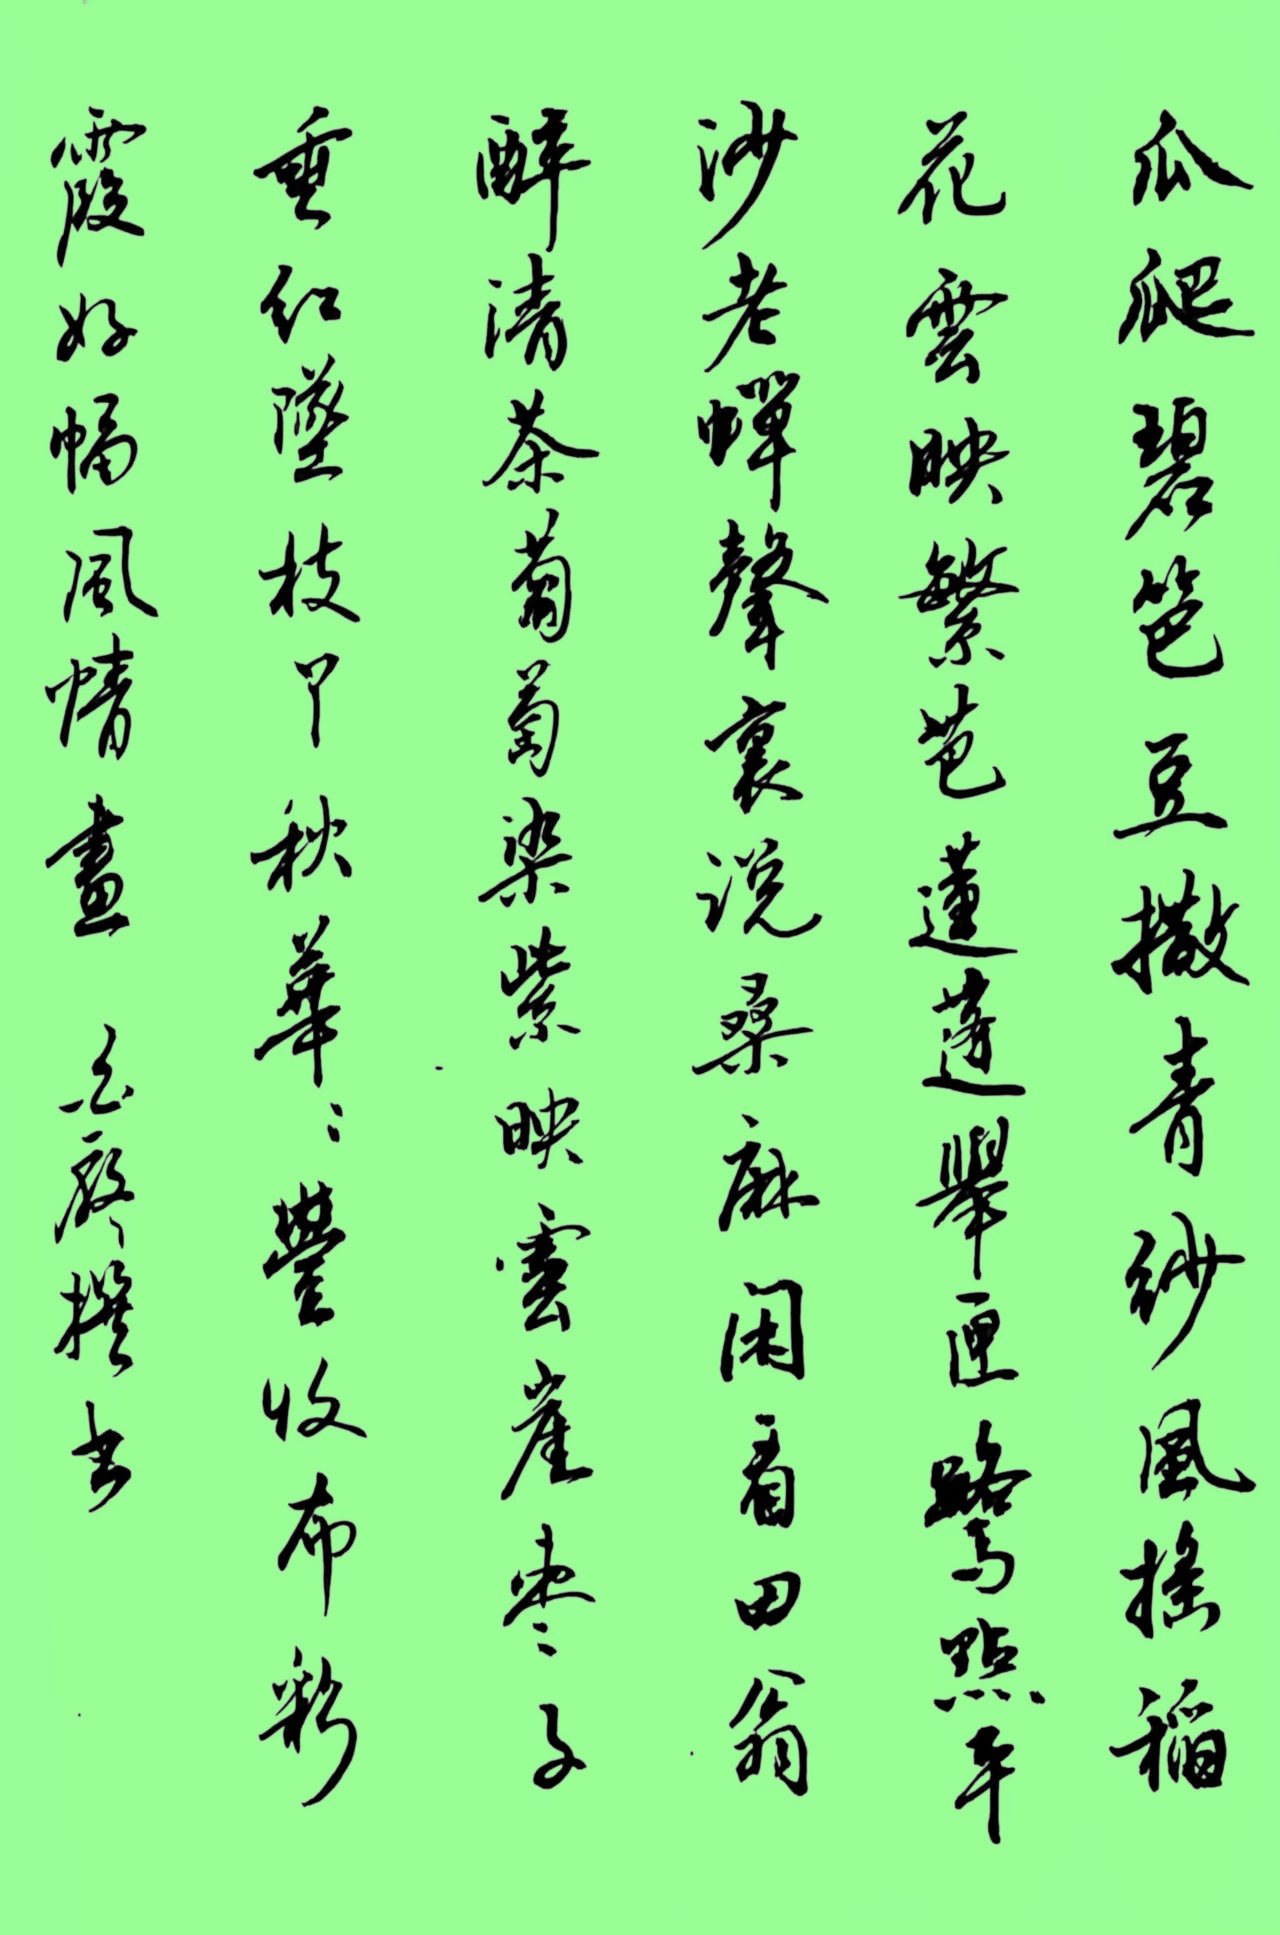 瓜爬碧笆豆撒青紗風搖稻
花雲映繁芭蓮蓬舉匣鷺點平
沙老蟬聲裏說桑麻閑看田翁
醉清茶葡萄染紫映雲崖棗子
垂紅墜枝丫秋華豐收布彩
霞好幅風情畫 撰書